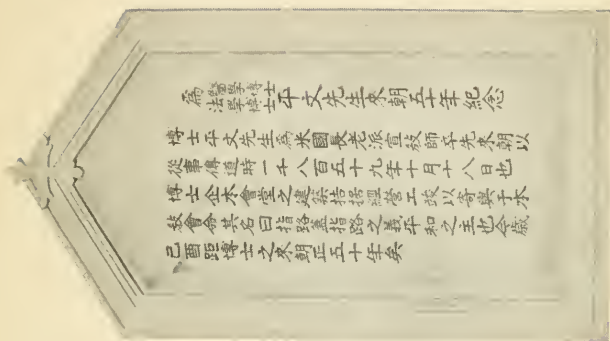 為醫學博士法學博士平文先生來朝五十年紀念
博士平文先生為米國長老派宣教師卒先來朝以
從事傳道時一千八百五十九年十月十八日也
博士企本會堂之建築拮据經營工竣以寄與于本
教會命其名曰指路蓋指路之義平和之主也今歲
己酉距博士之來朝正五十年矣